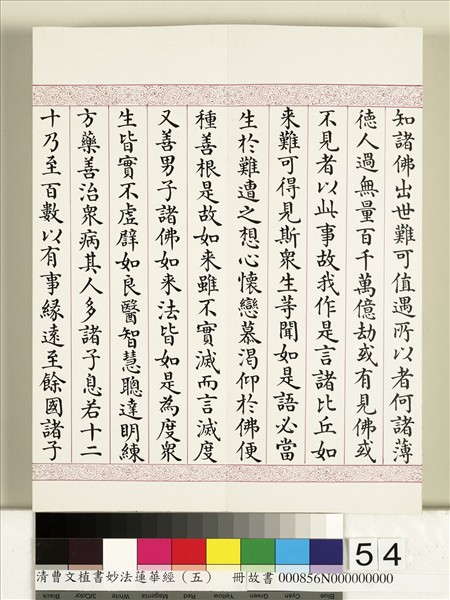 知諸佛出世難可值遇所以者何諸薄
德人過無量百千萬億劫或有見佛或
不見者以此事故我作是言諸比丘如
来難可得見斯衆生等聞如是語必當
生於難遭之想心懷戀慕渴仰於佛便
種善根是故如来雖不實滅而言滅度
又善男子諸佛如来法皆如是為度衆
生皆實不虛譬如良醫智慧聰達明練
方藥善治衆病其人多諸子息若十二
十乃至百數以有事緣遠至餘國諸子
Black
3/Color
White
Magenta
Red
Yellow
Green
Cyan
Blue
54
清曹文植書妙法蓮華經（五） 冊故書 000856N000000000